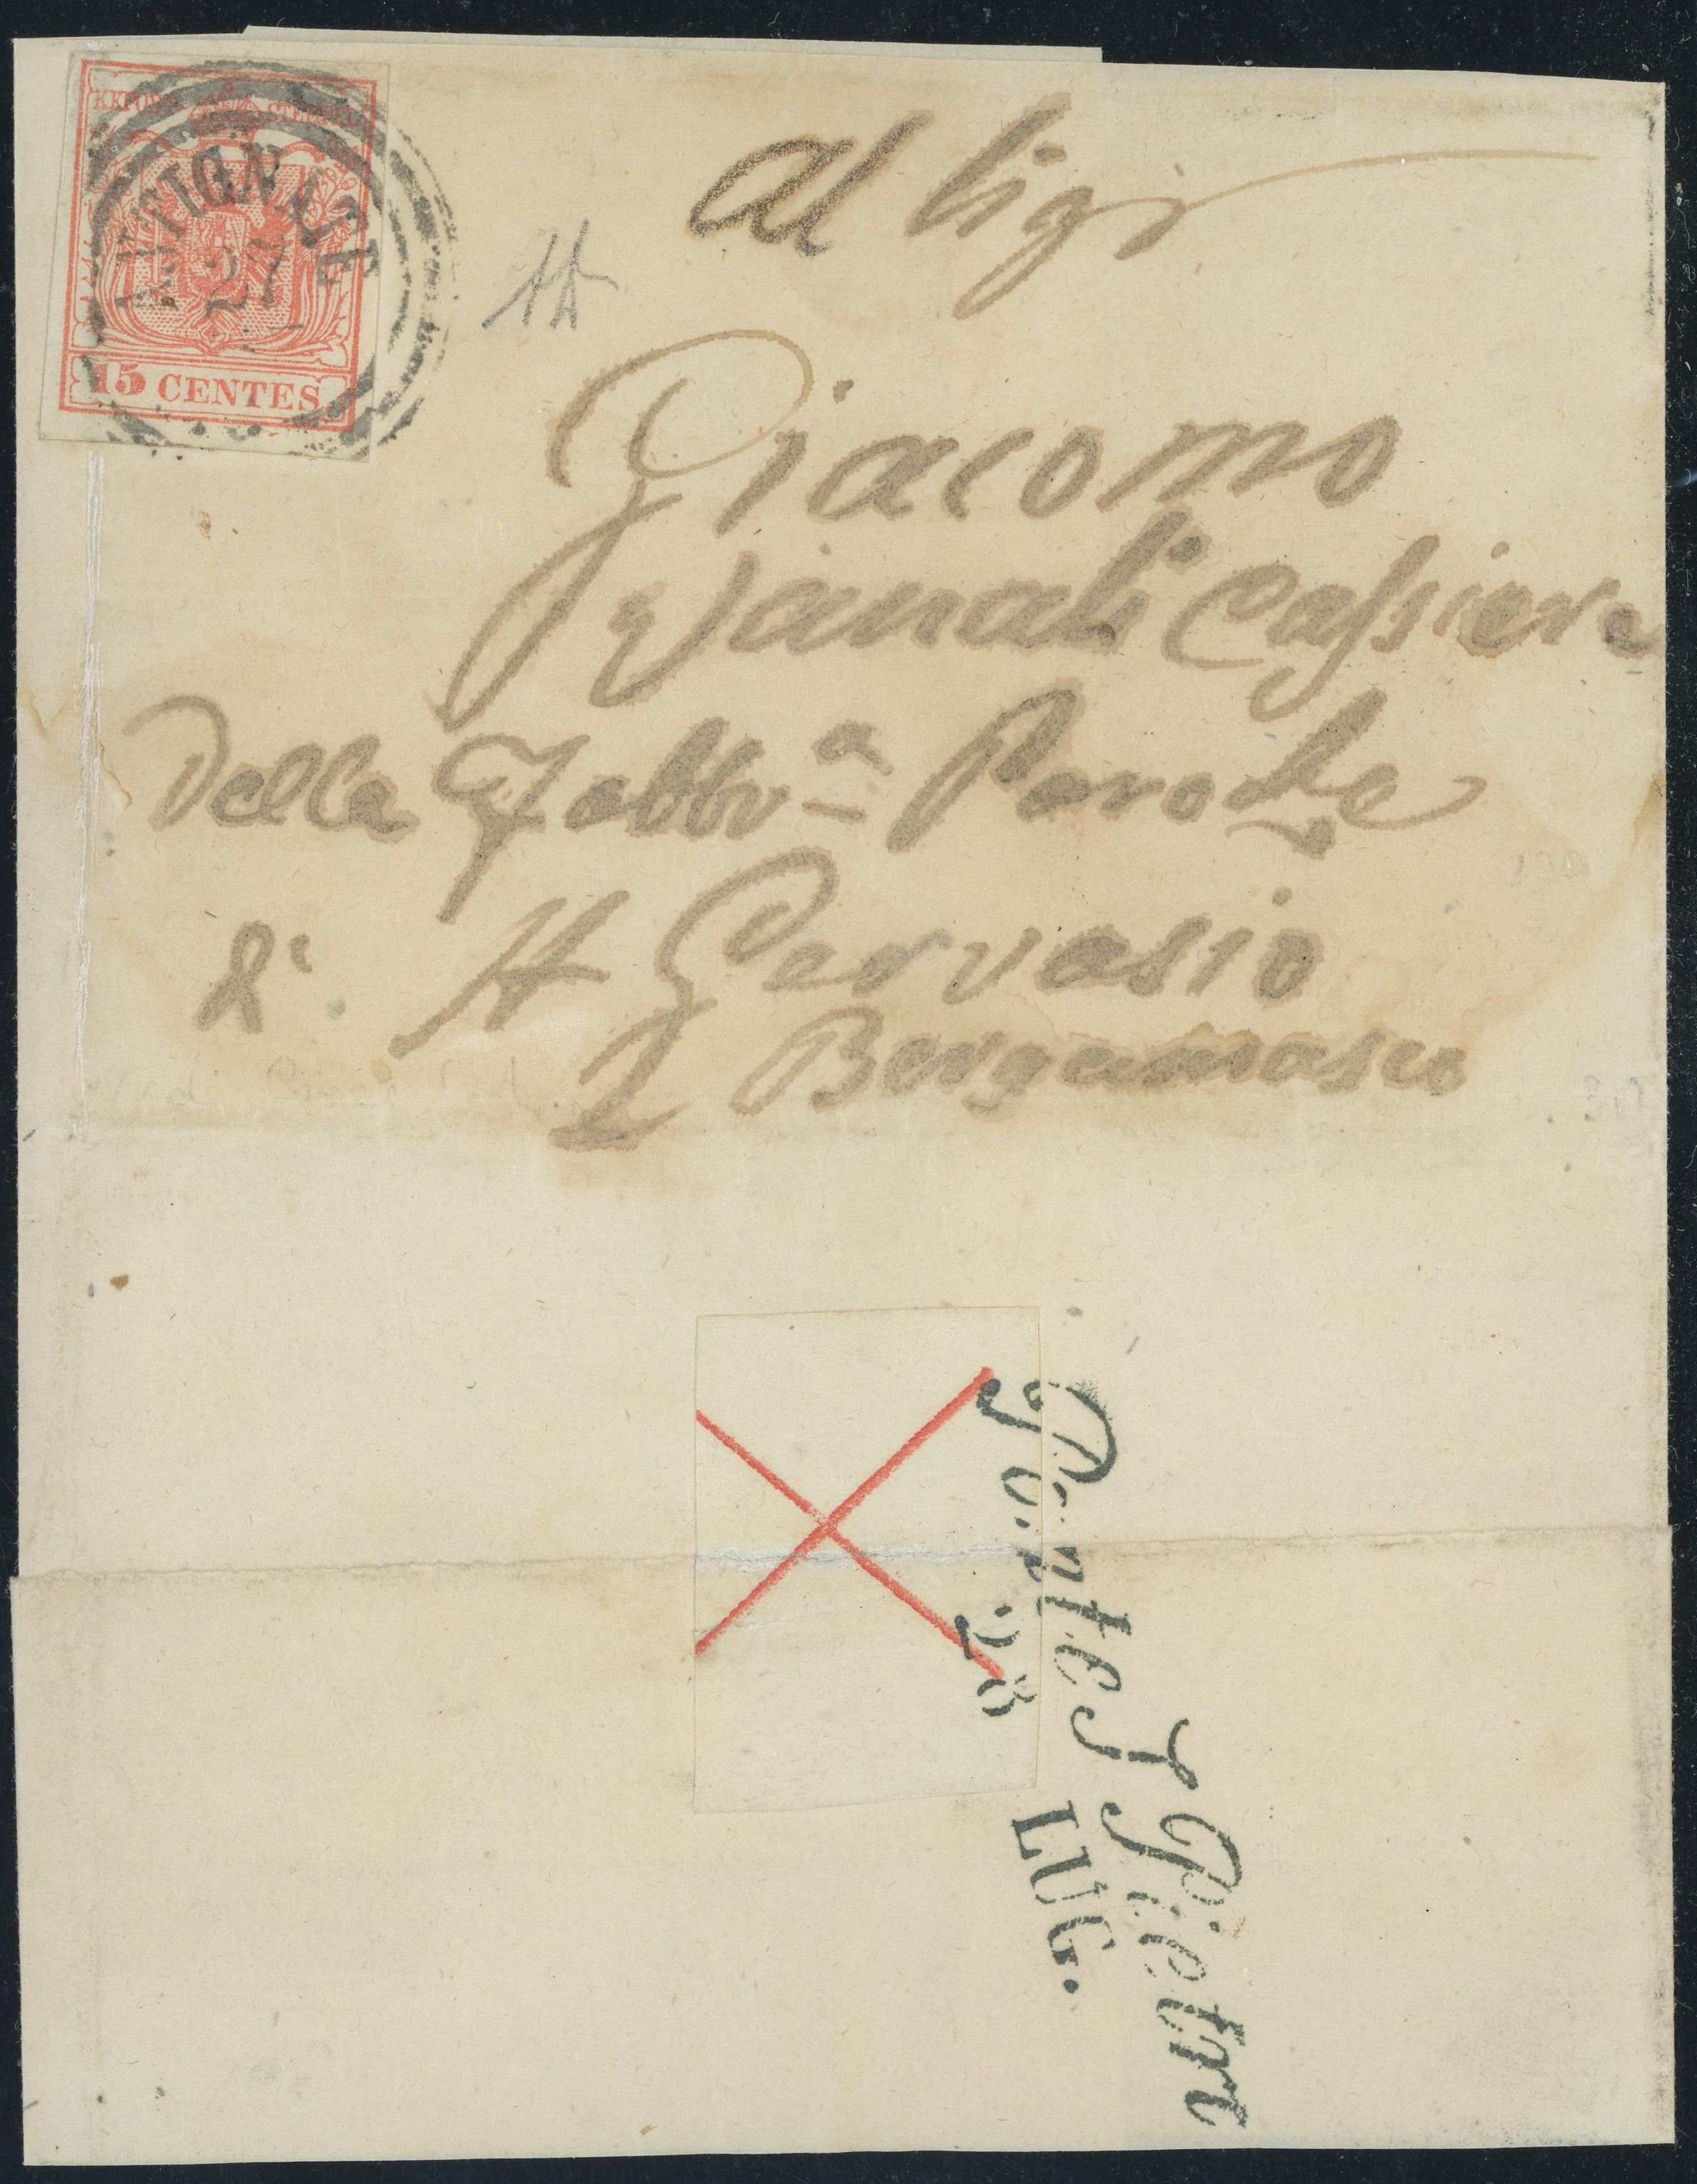 KK POST STEMPEL
15 CENTES
Al Sigr
Giacomo
Vanali Cassiere
Della Fabbr.a Parochle
Di. S. Gervasio
Bergamasco
Ponte S. Pietro
28 LUG.